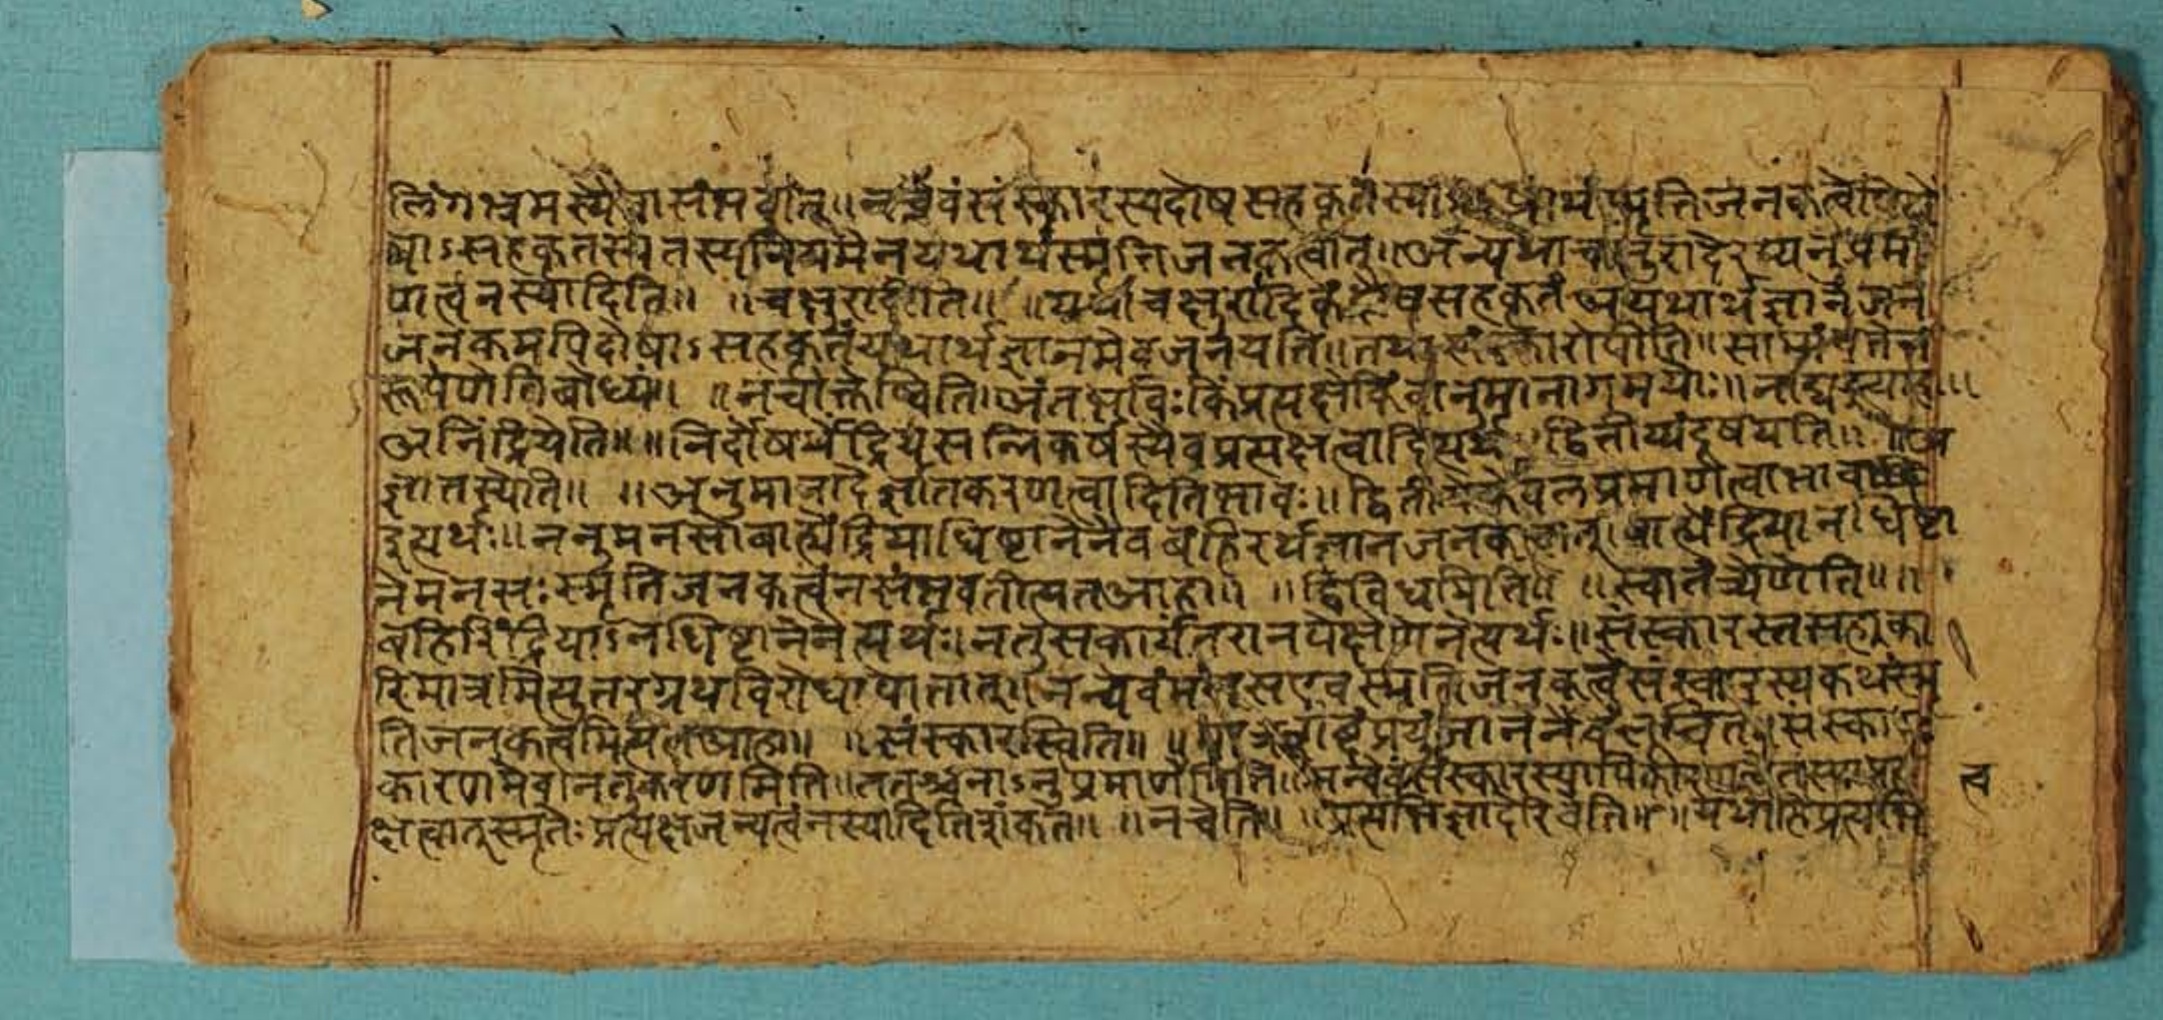 लिंगभ्रमस्यैवासंभवात्॥ नचैवंसंस्कारस्यदोषसहकृतस्या प्रतिजनकत्वेपिदो
षाऽसहकृतस्य तस्यनियमेनयथार्थस्मृतिजनकत्वात्॥ अन्यथाचक्षुरादेरप्यनुप्रमा
णत्वंनस्यादिति॥ ॥चक्षुरादीति॥ ॥यथाचक्षुरादिकंदोषसहकृतंअयथार्थज्ञानंजन
जनकमपिदोषाऽसहकृतंयथार्थज्ञानमेवजनयति॥ तथासंस्कारोपीति॥
रूपेणेतिबोध्यं॥ ॥नचोक्तेष्विति॥ अंतर्भावः किंप्रत्यक्षेकिंवानुमानागमयोः॥ नाद्यइत्याह॥॥
अनिंद्रियेति॥ ॥निर्दोषार्थेंद्रियसन्निकर्षस्यैवप्रत्यक्षत्वादित्यर्थः द्वितीयंदूषयति॥ ॥अ
ज्ञातस्येति॥ ॥अनुमानादेर्ज्ञातकरणत्वादितिभावः॥ द्वितीयेकेवलप्रमाणत्वाभावा
दित्यर्थः॥ ननुमनसोबाह्येंद्रियाधिष्टानेनैवबहिरर्थज्ञानजनकत्वात्॥ बाह्येंद्रियानधिष्टा
नेमनसः स्मृतिजनकत्वंनसंभवतीत्यतआह॥ ॥द्विविधमिति॥ ॥स्वातंत्र्येणेति॥ ॥
बहिरिंद्रियाऽनधिष्टानेनेत्यर्थः॥ नतुसकार्यंतरानपेक्षेणेनेत्यर्थः॥ संस्कारस्तुसहका
रिमात्रमित्युत्तरग्रंथविरोधापातात्॥ नन्वेवंमनसएवस्मृतिजनकत्वेसंस्कारस्यकथंस्मृ
तिजनकत्वमित्यतआह॥ ॥संस्कारस्त्विति॥ ॥ प्रयुंजानेनेदंसूचितं॥ संस्कारः
कारणमेवनतुकरणमिति॥ ततश्चनाऽनुप्रमाणमिति॥ नन्वेवंसंस्कारस्यापि
क्षत्वात्स्मृतेः प्रत्यक्षजन्यत्वंनस्यादितिशंकते॥ ॥नचेति॥ ॥प्रत्यभिज्ञादेरिवेति॥ ॥यथाहिप्रत्यभि